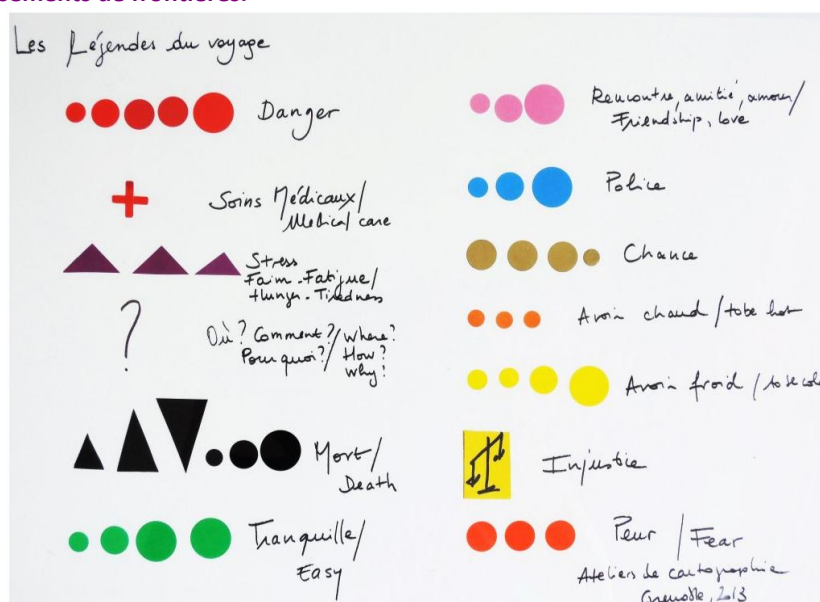 sements de frontières.
Les Légendes du voyage
Danger
Soins Médicaux/
Medical care
Stress
Faim-Fatigue/
Hunger-Tiredness
?
Où? Comment?/Where?
Pourquoi?/How?
Why?
Mort/
Death
Tranquille/
Easy
Rencontre, amitié, amour/
Friendship, love
Police
Chance
Avoir chaud/to be hot
Avoir froid/to be col
Injustice
Peur/Fear
Ateliers de cartographie
Grenoble, 2013